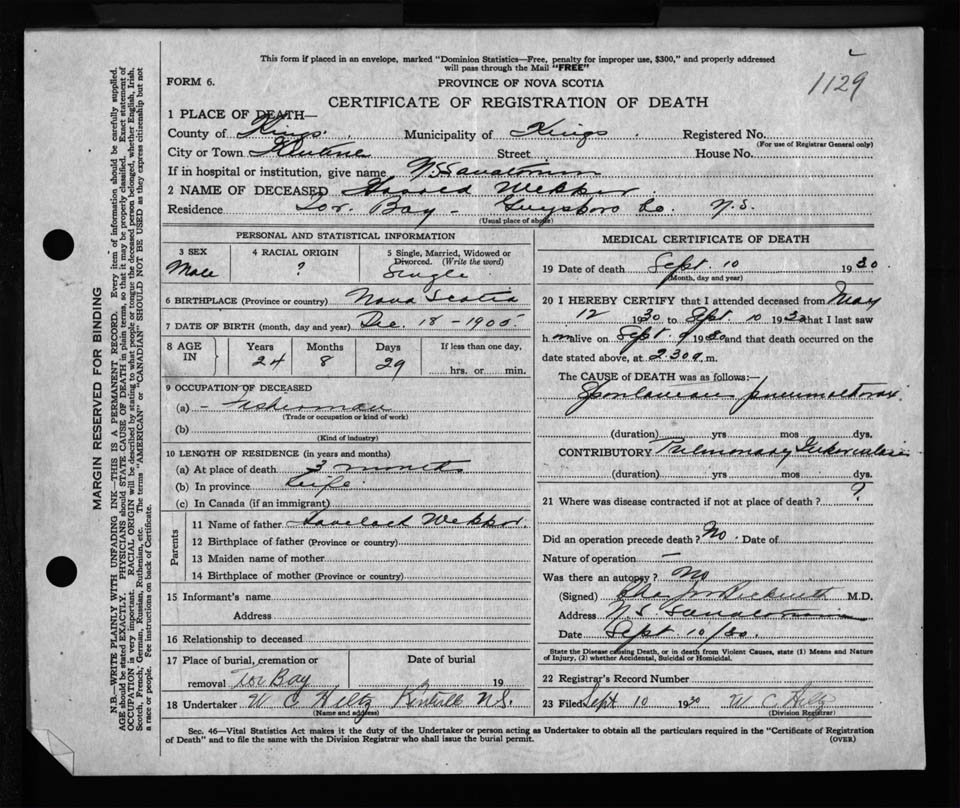 This form if placed in an envelope, marked "Dominion Statistics—Free, penalty for improper use, $300," and properly addressed
will pass through the Mail "FREE"
1129
FORM 6.
PROVINCE OF NOVA SCOTIA
CERTIFICATE OF REGISTRATION OF DEATH
1 PLACE OF DEATH—
County of Kings. Municipality of Kings. Registered No.
(For use of Registrar General only)
City or Town Street House No.
If in hospital or institution, give name N.S. Sanatorium
2 NAME OF DECEASED Harold Webber
Residence Tor. Bay – Guysboro Co. N.S.
(Usual place of abode)
PERSONAL AND STATISTICAL INFORMATION
3 SEX
Male
4 RACIAL ORIGIN
?
5 Single, Married, Widowed or
Divorced. (Write the word)
Single
6 BIRTHPLACE (Province or country) Nova Scotia
7 DATE OF BIRTH (month, day and year) Dec. 18 – 1905.
8 AGE
IN
Years
24
Months
8
Days
29
If less than one day,
hrs. or min.
9 OCCUPATION OF DECEASED
(a) – Fisherman
(Trade or occupation or kind of work)
(b)
(Kind of industry)
10 LENGTH OF RESIDENCE (in years and months)
(a) At place of death 3 months
(b) In province Life
(c) In Canada (if an immigrant)
Parents
11 Name of father Havelock Webber.
12 Birthplace of father (Province or country)
13 Maiden name of mother
14 Birthplace of mother (Province or country)
15 Informant's name
Address
16 Relationship to deceased
17 Place of burial, cremation or
removal Tor Bay
Date of burial
19
18 Undertaker W C Hiltz Kentville N.S.
(Name and address)
MEDICAL CERTIFICATE OF DEATH
19 Date of death Sept. 10 1930
(Month, day and year)
20 I HEREBY CERTIFY that I attended deceased from May
12 1930 to Sept 10 1930 that I last saw
h m alive on Sept 9 1930 and that death occurred on the
date stated above, at 2.30 a. m.
The CAUSE of DEATH was as follows:—
Spontaneous pneumothorax
(duration) yrs mos dys.
CONTRIBUTORY Pulmonary Tuberculosis
(duration) yrs mos. dys.
21 Where was disease contracted if not at place of death? ?
Did an operation precede death? No. Date of
Nature of operation —
Was there an autopsy? No
(Signed) M.D.
Address N.S. Sanatorium
Date Sept 10/30.
State the Disease causing Death, or in death from Violent Causes, state (1) Means and Nature
of Injury, (2) whether Accidental, Suicidal or Homicidal.
22 Registrar's Record Number
23 Filed Sept 10 1930 W C Hiltz
(Division Registrar)
Sec. 46—Vital Statistics Act makes it the duty of the Undertaker or person acting as Undertaker to obtain all the particulars required in the "Certificate of Registration
of Death" and to file the same with the Division Registrar who shall issue the burial permit.
(OVER)
MARGIN RESERVED FOR BINDING
N.B.—WRITE PLAINLY WITH UNFADING INK—THIS IS A PERMANENT RECORD. Every item of information should be carefully supplied.
AGE should be stated EXACTLY. PHYSICIANS should STATE CAUSE OF DEATH in plain terms, so that it may be properly classified. Exact statement of
OCCUPATION is very important. RACIAL ORIGIN will be described by stating to what people or tongue the deceased person belonged, whether English, Irish,
Scotch, French, German, Russian, Ruthenian, etc. The terms "AMERICAN" or "CANADIAN" SHOULD NOT BE USED as they express citizenship but not
a race or people. See instructions on back of Certificate.